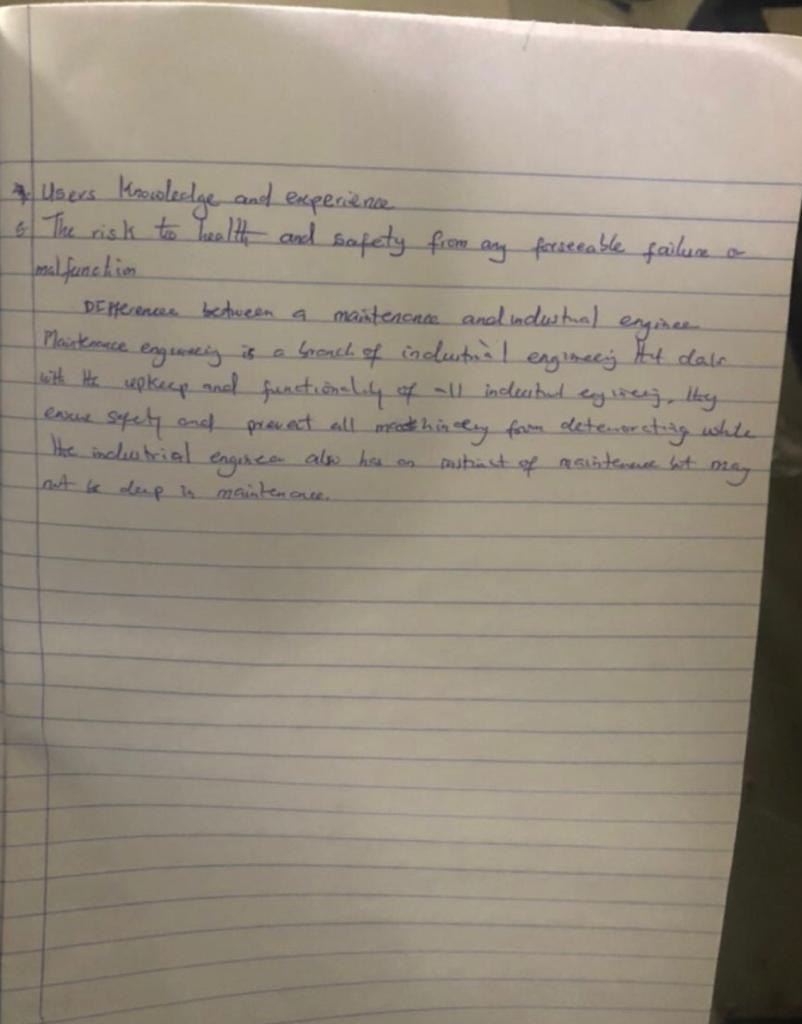 Users Knowledge and experience
The risk to health and safety from any forseeable failure or
malfunction
Differences between a maintenance and industrial engineer
Maintenance engineering is a branch of industrial engineering that deals
with the upkeep and functionality of all industrial engineering, they
ensure safety and prevent all machinery from deteriorating while
the industrial engineer also has an of maintenance but may
not be deep in maintenance.